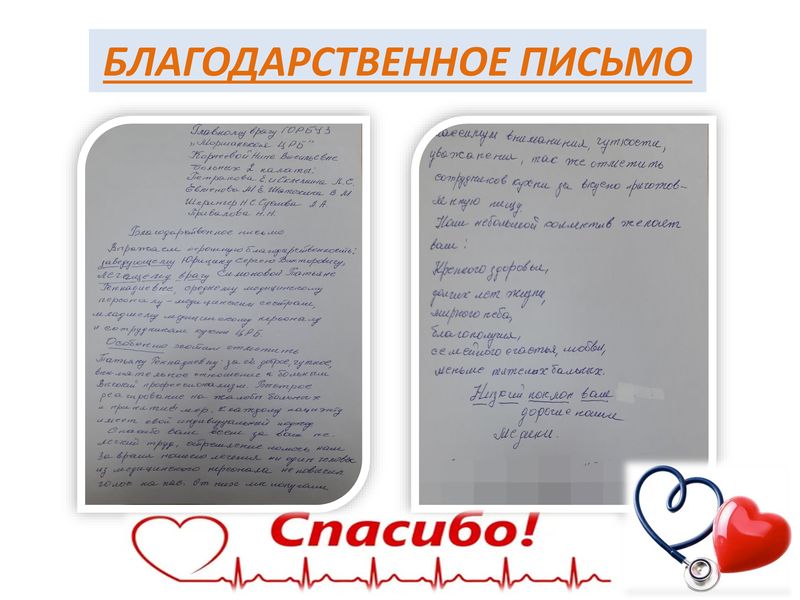 БЛАГОДАРСТВЕННОЕ ПИСЬМО
Главному врачу ГОРБУЗ
„Моршанская ЦРБ"
Корневой Нине Васильевне
больных 2 палаты:
Петракова Е.И
М.Е Н.С
Привалова Н.Н.
Благодарственное письмо
Выражаем огромную благодарственность:
заведующему Юрицину Сергею Викторовичу,
лечащему врачу Симоновой Татьяне
Геннадиевне, среднему медицинскому
персоналу – медицинским сестрам,
младшему медицинскому персоналу
и сотрудникам кухни ЦРБ.
Особенно хотим отметить
Татьяну Генадиевну: за её доброе, чуткое,
внимательное отношение к больным
Высокий профессионализм. Быстрое
реагирование на жалобы больных
и принятие мер, к каждому пациенту
имеет свой индивидуальный подход
Спасибо вам всем за ваш не-
легкий труд, стремление помочь нам
За время нашего лечения ни один человек
из медицинского персонала не повысил
голос на нас. От них мы получали
максимум внимания, чуткости,
уважения, так же отметить
сотрудников кухни за вкусно приготов-
ленную пищу.
Наш небольшой коллектив желает
вам:
Крепкого здоровья,
долгих лет жизни,
мирного неба,
благополучия,
семейного счастья, любви,
меньше тяжелых больных.
Низкий поклон вам
дорогие наши
Медики.
Спасибо!